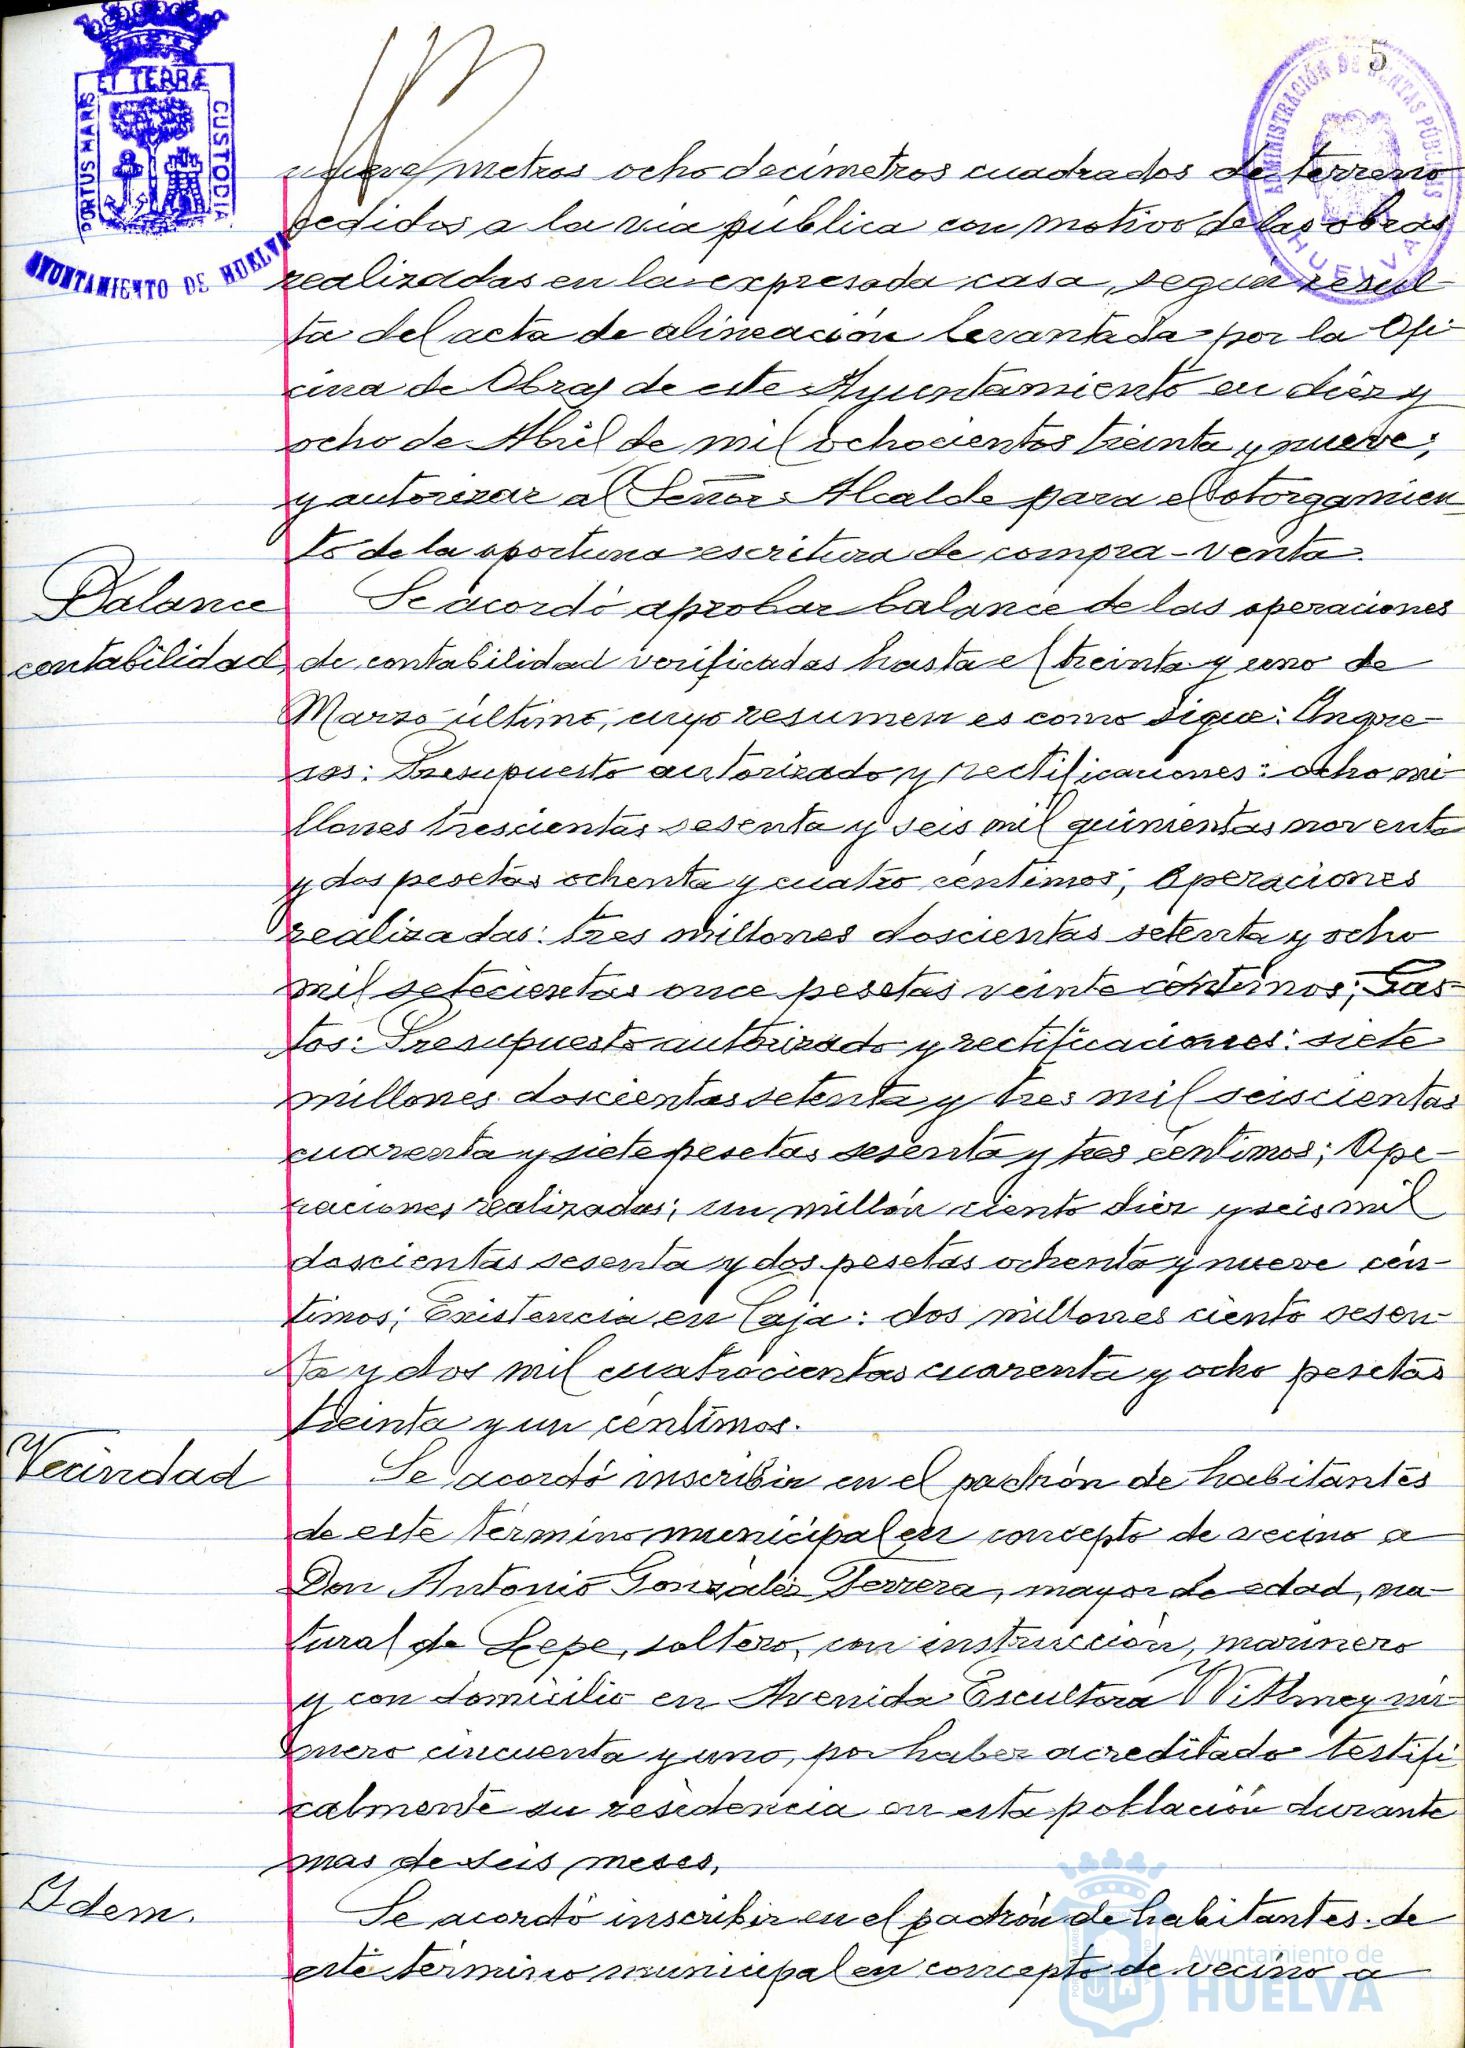 5
ET TERRÆ
PORTUS MARIS
CUSTODIA
AYUNTAMIENTO DE HUELVA
ADMINISTRACIÓN DE RENTAS PÚBLICAS
HUELVA
nueve metros ocho decímetros cuadrados de terreno
cedidos a la vía pública con motivo de las obras
realizadas en la expresada casa, según resul-
ta del acta de alineación levantada por la Ofi-
cina de Obras de este Ayuntamiento en diez y
ocho de Abril de mil ochocientos treinta y nueve;
y autorizar al Señor Alcalde para el otorgamien-
to de la oportuna escritura de compra-venta.
Balance
contabilidad
Se acordó aprobar balance de las operaciones
de contabilidad verificadas hasta el treinta y uno de
Marzo último, cuyo resumen es como sigue: Ingre-
sos: Presupuesto autorizado y rectificaciones: ocho mi
llones trescientas sesenta y seis mil quinientas noventa
y dos pesetas ochenta y cuatro céntimos; Operaciones
realizadas: tres millones doscientas setenta y ocho
mil setecientas once pesetas veinte céntimos; Gas-
tos: Presupuesto autorizado y rectificaciones: siete
millones doscientas setenta y tres mil seiscientas
cuarenta y siete pesetas sesenta y tres céntimos; Ope-
raciones realizadas; un millón ciento diez y seis mil
doscientas sesenta y dos pesetas ochenta y nueve cén-
timos; Existencia en Caja: dos millones ciento sesen-
ta y dos mil cuatrocientas cuarenta y ocho pesetas
treinta y un céntimos.
Vecindad
Se acordó inscribir en el padrón de habitantes
de este término municipal en concepto de vecino a
Don Antonio González Ferrera, mayor de edad, na-
tural de Lepe, soltero, con instrucción, marinero
y con domicilio en Avenida Escultora Withney nú-
mero cincuenta y uno, por haber acreditado testifi
calmente su residencia en esta población durante
mas de seis meses.
Idem.
Se acordó inscribir en el padrón de habitantes de
este término municipal en concepto de vecino a
Ayuntamiento de
HUELVA